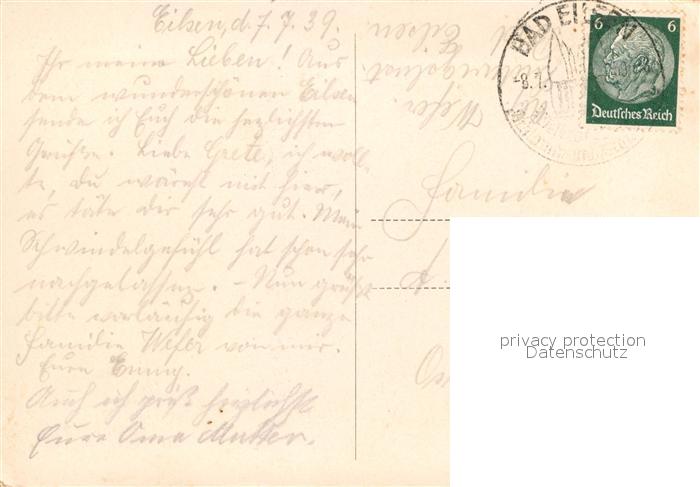 Eilsen, d. 7. 7. 39.
Ihr meine Lieben! Aus
dem wunderschönen Eilsen
sende ich Euch die herzlichsten
Grüße. Liebe Grete, ich woll-
te, du wärest mit hier,
es täte dir sehr gut. Mein
Schwindelgefühl hat schon sehr
nachgelassen. – Nun grüßt
bitte vorläufig die ganze
Familie Wefer von mir.
Eure
Auch ich grüße herzlichst
Eure Oma Mutter.
Eilsen
Wefer
Familie
BAD EILSEN
-8.7.
6 6
Deutsches Reich
privacy protection
Datenschutz